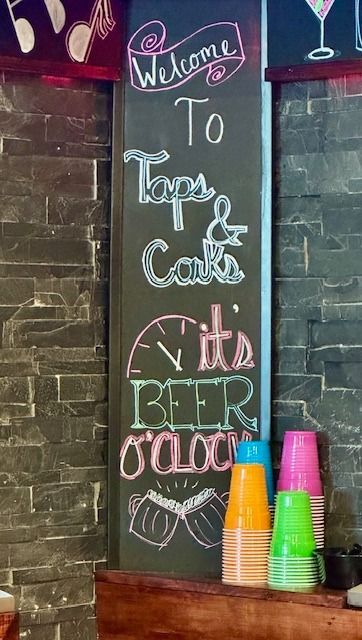 Welcome
To
Taps
&
Corks
it's
BEER
O'CLOCK